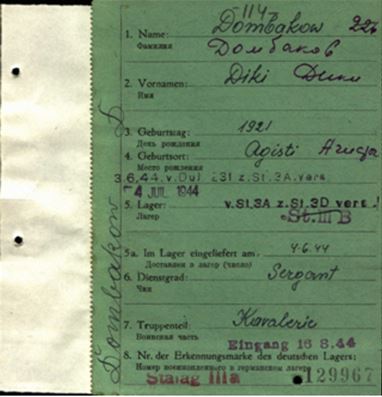 114
1. Name: Dombakow 226
Фамилия Домбаков
2. Vornamen: Diki Дики
Имя
3. Geburtstag: 1921
День рождения
4. Geburtsort: Agisti
Место рождения
3.6.44.v.Dul 231 z.St.3A.vers
4 JUL 1944
5. Lager: v.St.3A z.St.3D vers.
Лагер St.III B
5a. Im Lager eingeliefert am: 4.6.44
Доставлен в лагер (число)
6. Dienstgrad: Sergant
Чин
7. Truppenteil: Kavalerie
Воинская часть
Eingang 16 8.44
8. Nr. der Erkennungsmarke des deutschen Lagers:
Номер военнопленного в германском лагере
Stalag IIIa 129967
Dombakow D